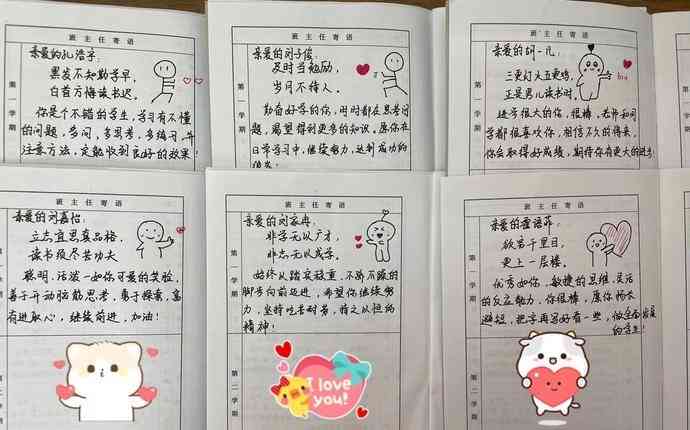 班主任寄语
第一学期
亲爱的孔浩宇:
黑发不知勤学早,
白首方悔读书迟。
你是个不错的学生,学习有不懂
的问题,多问,多思考,多练习,并
注意方法,定能收到良好的效果!
班主任寄语
第一学期
亲爱的刘子俊:
及时当勉励,
岁月不待人。
勤奋好学的你,时时都在思考问
题,渴望得到更多的知识,愿你在
日常学习中,继续努力,达到成功的
班主任寄语
第一学期
亲爱的胡一凡:
三更灯火五更鸡,
正是男儿读书时。
biu
进步很大的你,很棒,老师和同
学都很喜欢你,相信不久的将来,
你会取得好成绩,期待你有更大的进步!
班主任寄语
第一学期
亲爱的刘嘉怡:
立志宜思真品格,
读书须尽苦功夫
聪明、活泼一如你可爱的笑脸,
善于开动脑筋思考,勇于探索,富
有进取心,继续前进,加油!
第二学期
班主任寄语
第一学期
亲爱的刘家冉:
非学无以广才,
非志无以成学。
始终以踏实稳重、不骄不躁的
脚步向前迈进,希望你继续努
力,坚持吃苦耐劳,持之以恒的
精神!
第二学期
I love
you!
班主任寄语
第一学期
亲爱的霍语菲:
欲穷千里目,
更上一层楼。
优秀如你,敏捷的思维、灵活
的反应能力,你很棒,愿你扬长
避短,把字再写好有一些,做全面发展
的学生!
第二学期